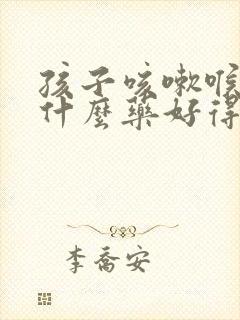 孩子咳嗽喉
什麼藥好得
李喬安